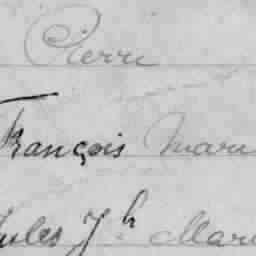 Pierre
François Marie
Jules Jh Mari